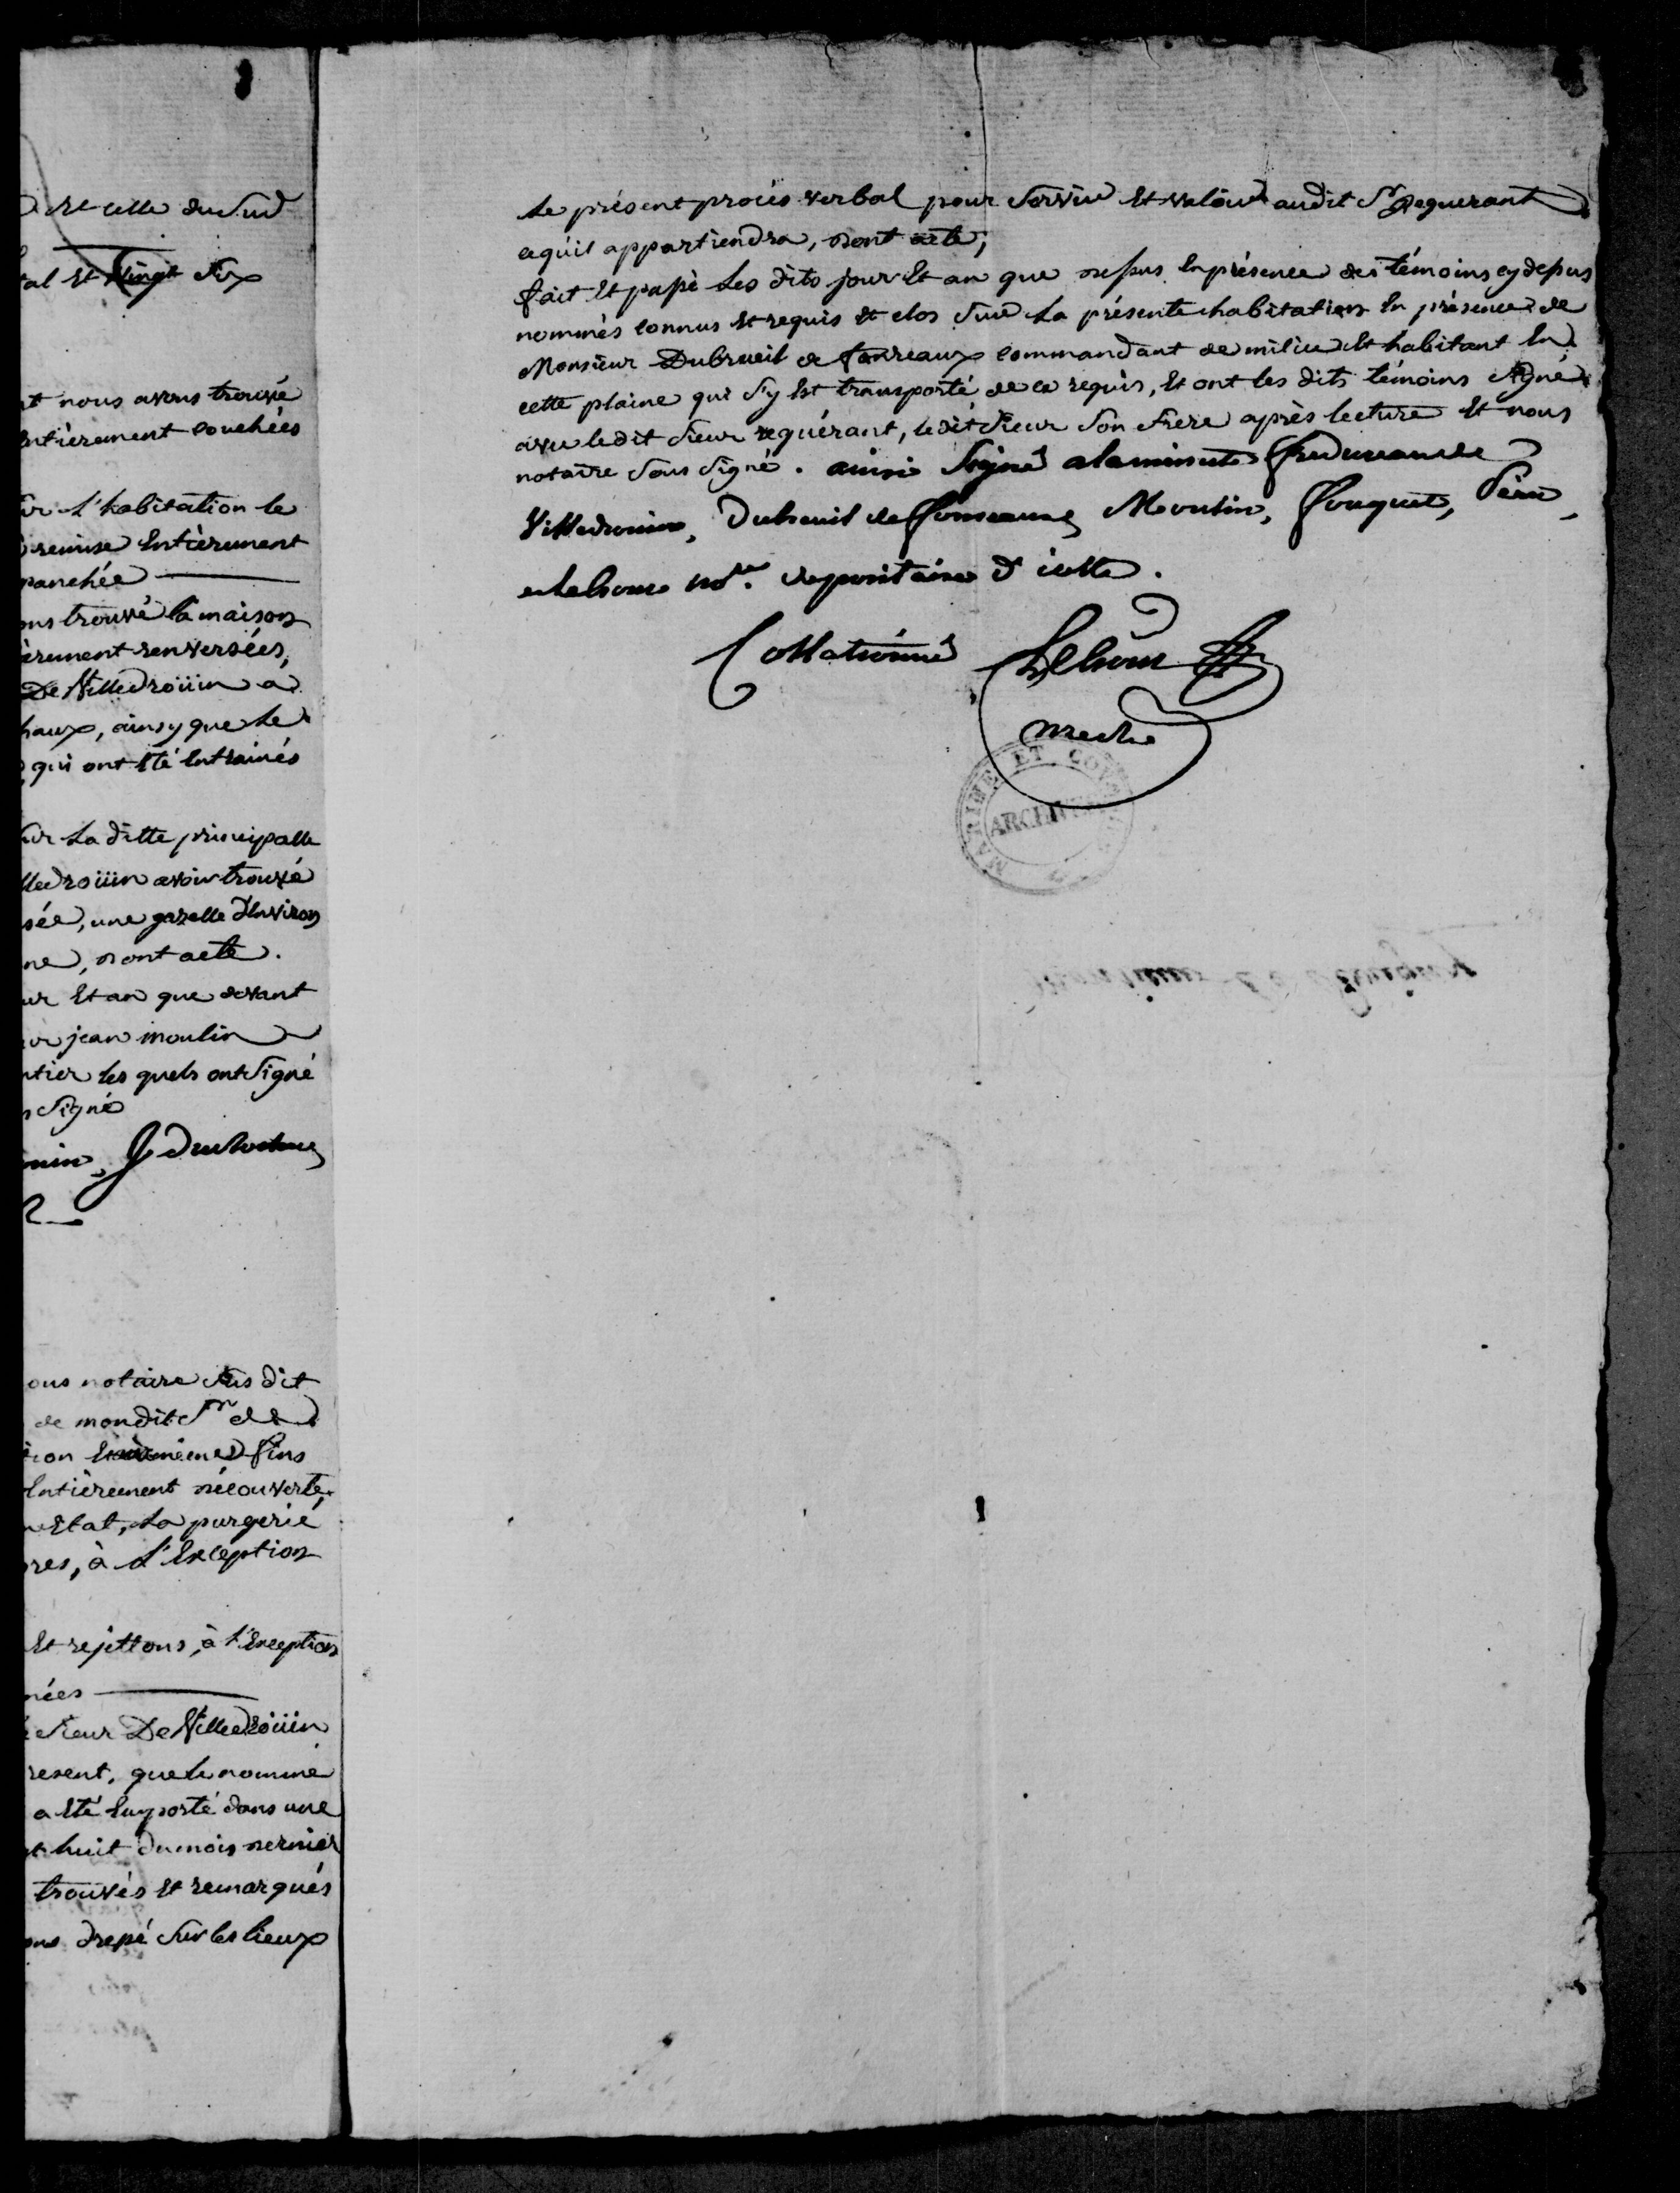 Et celle du Sud
al Et Vingt Six
nt nous avons trouvé
Entièrement couchées
ur L'habitation le
remise Entièrement
panchée
ons trouvé la maison
èrement renversées,
De Villedroüin a
haux, ainsy que le
qui ont Eté Entrainés
Sur La ditte principalle
lledroüin avoir trouvé
sée, une gazelle d'Environ
ne, dont acte.
ur Et an que devant
jean moulin
ntier les quels ont Signé
Signé
ous notaire Sus dit
de mondit Sr de
tion mêmes fins
Entièrement découverte,
Etat, La purgerie
res, à L'Exception
Et rejettons, à l'Exception
nées
Sieur De Villedroüin
resent, que le nommé
a Eté Emporté dans une
t huit du mois dernier
trouvés Et remarqués
ons drepé Sur les lieux
Le présent procès verbal pour Servir Et valoir audit Sr Requerant
ce qu'il appartiendra, dont acte;
fait Et passé Les dits jour Et an que dessus En présence des témoins cy dessus
nommés connus Et requis Et clos Sur La présente habitation En présence de
Monsieur Dubreuil de fonreaux commandant de milice Et habitant En
cette plaine qui S'y Est transporté de ce requis, Et ont les dits témoins Signé
avec le dit Sieur requérant, le dit Sieur Son frere après lecture Et nous
notaire Sous Signé. ainsi Signé a la minute
Villedrouin, Dubreuil de Moulin, Fouquet,
et Lehoux nore. depositaire d'icelle.
Collationné Lehoux
MARINE ET COLONIES
ARCHIVES